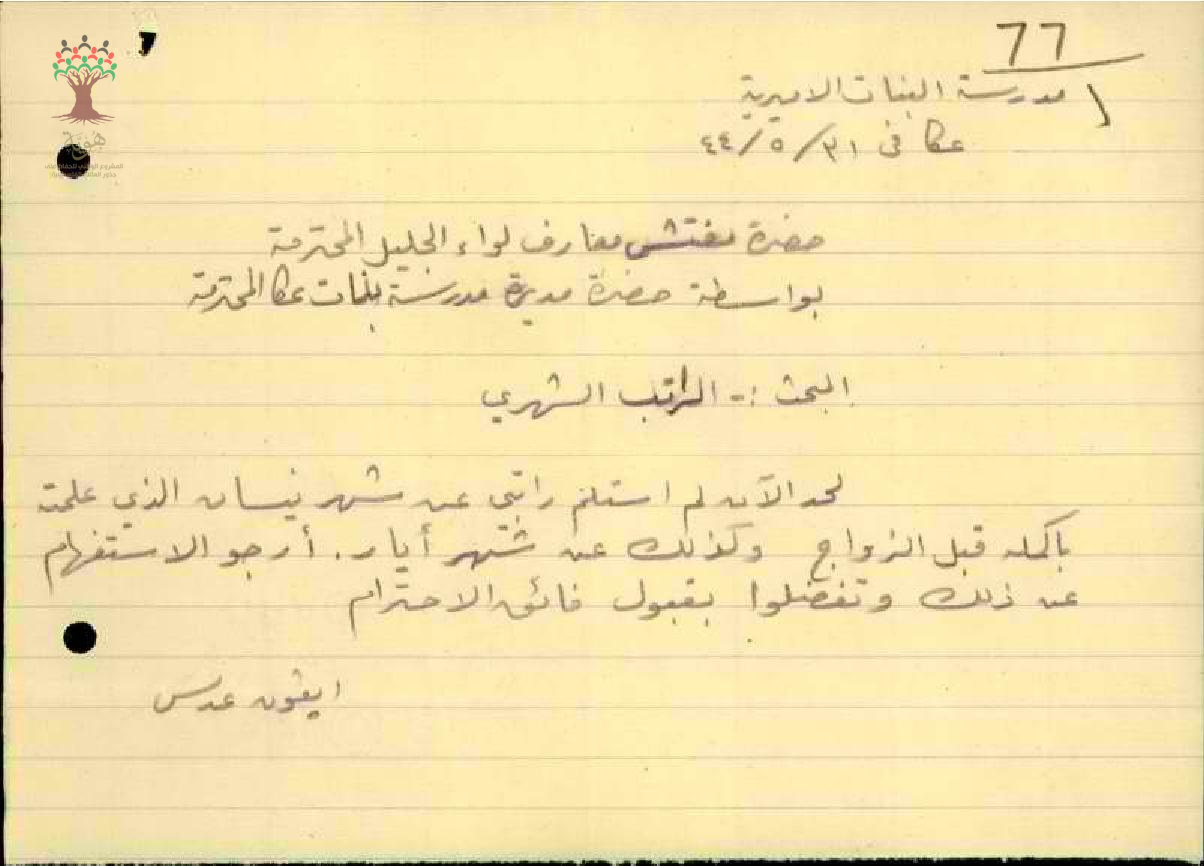 77
مدرسة البنات الاميرية
عكا في ٣١/٥/٤٤
هوية
حضرة مفتش معارف لواء الجليل المحترمة
بواسطة حضرة مديرة مدرسة بنات عكا المحترمة
البحث :- الراتب الشهري
لحد الآن لم استلم راتبي عن شهر نيسان الذي علمت
باكمله قبل الزواج وكذلك عن شهر أيار. أرجو الاستفهام
عن ذلك وتفضلوا بقبول فائق الاحترام
ايفون عدس